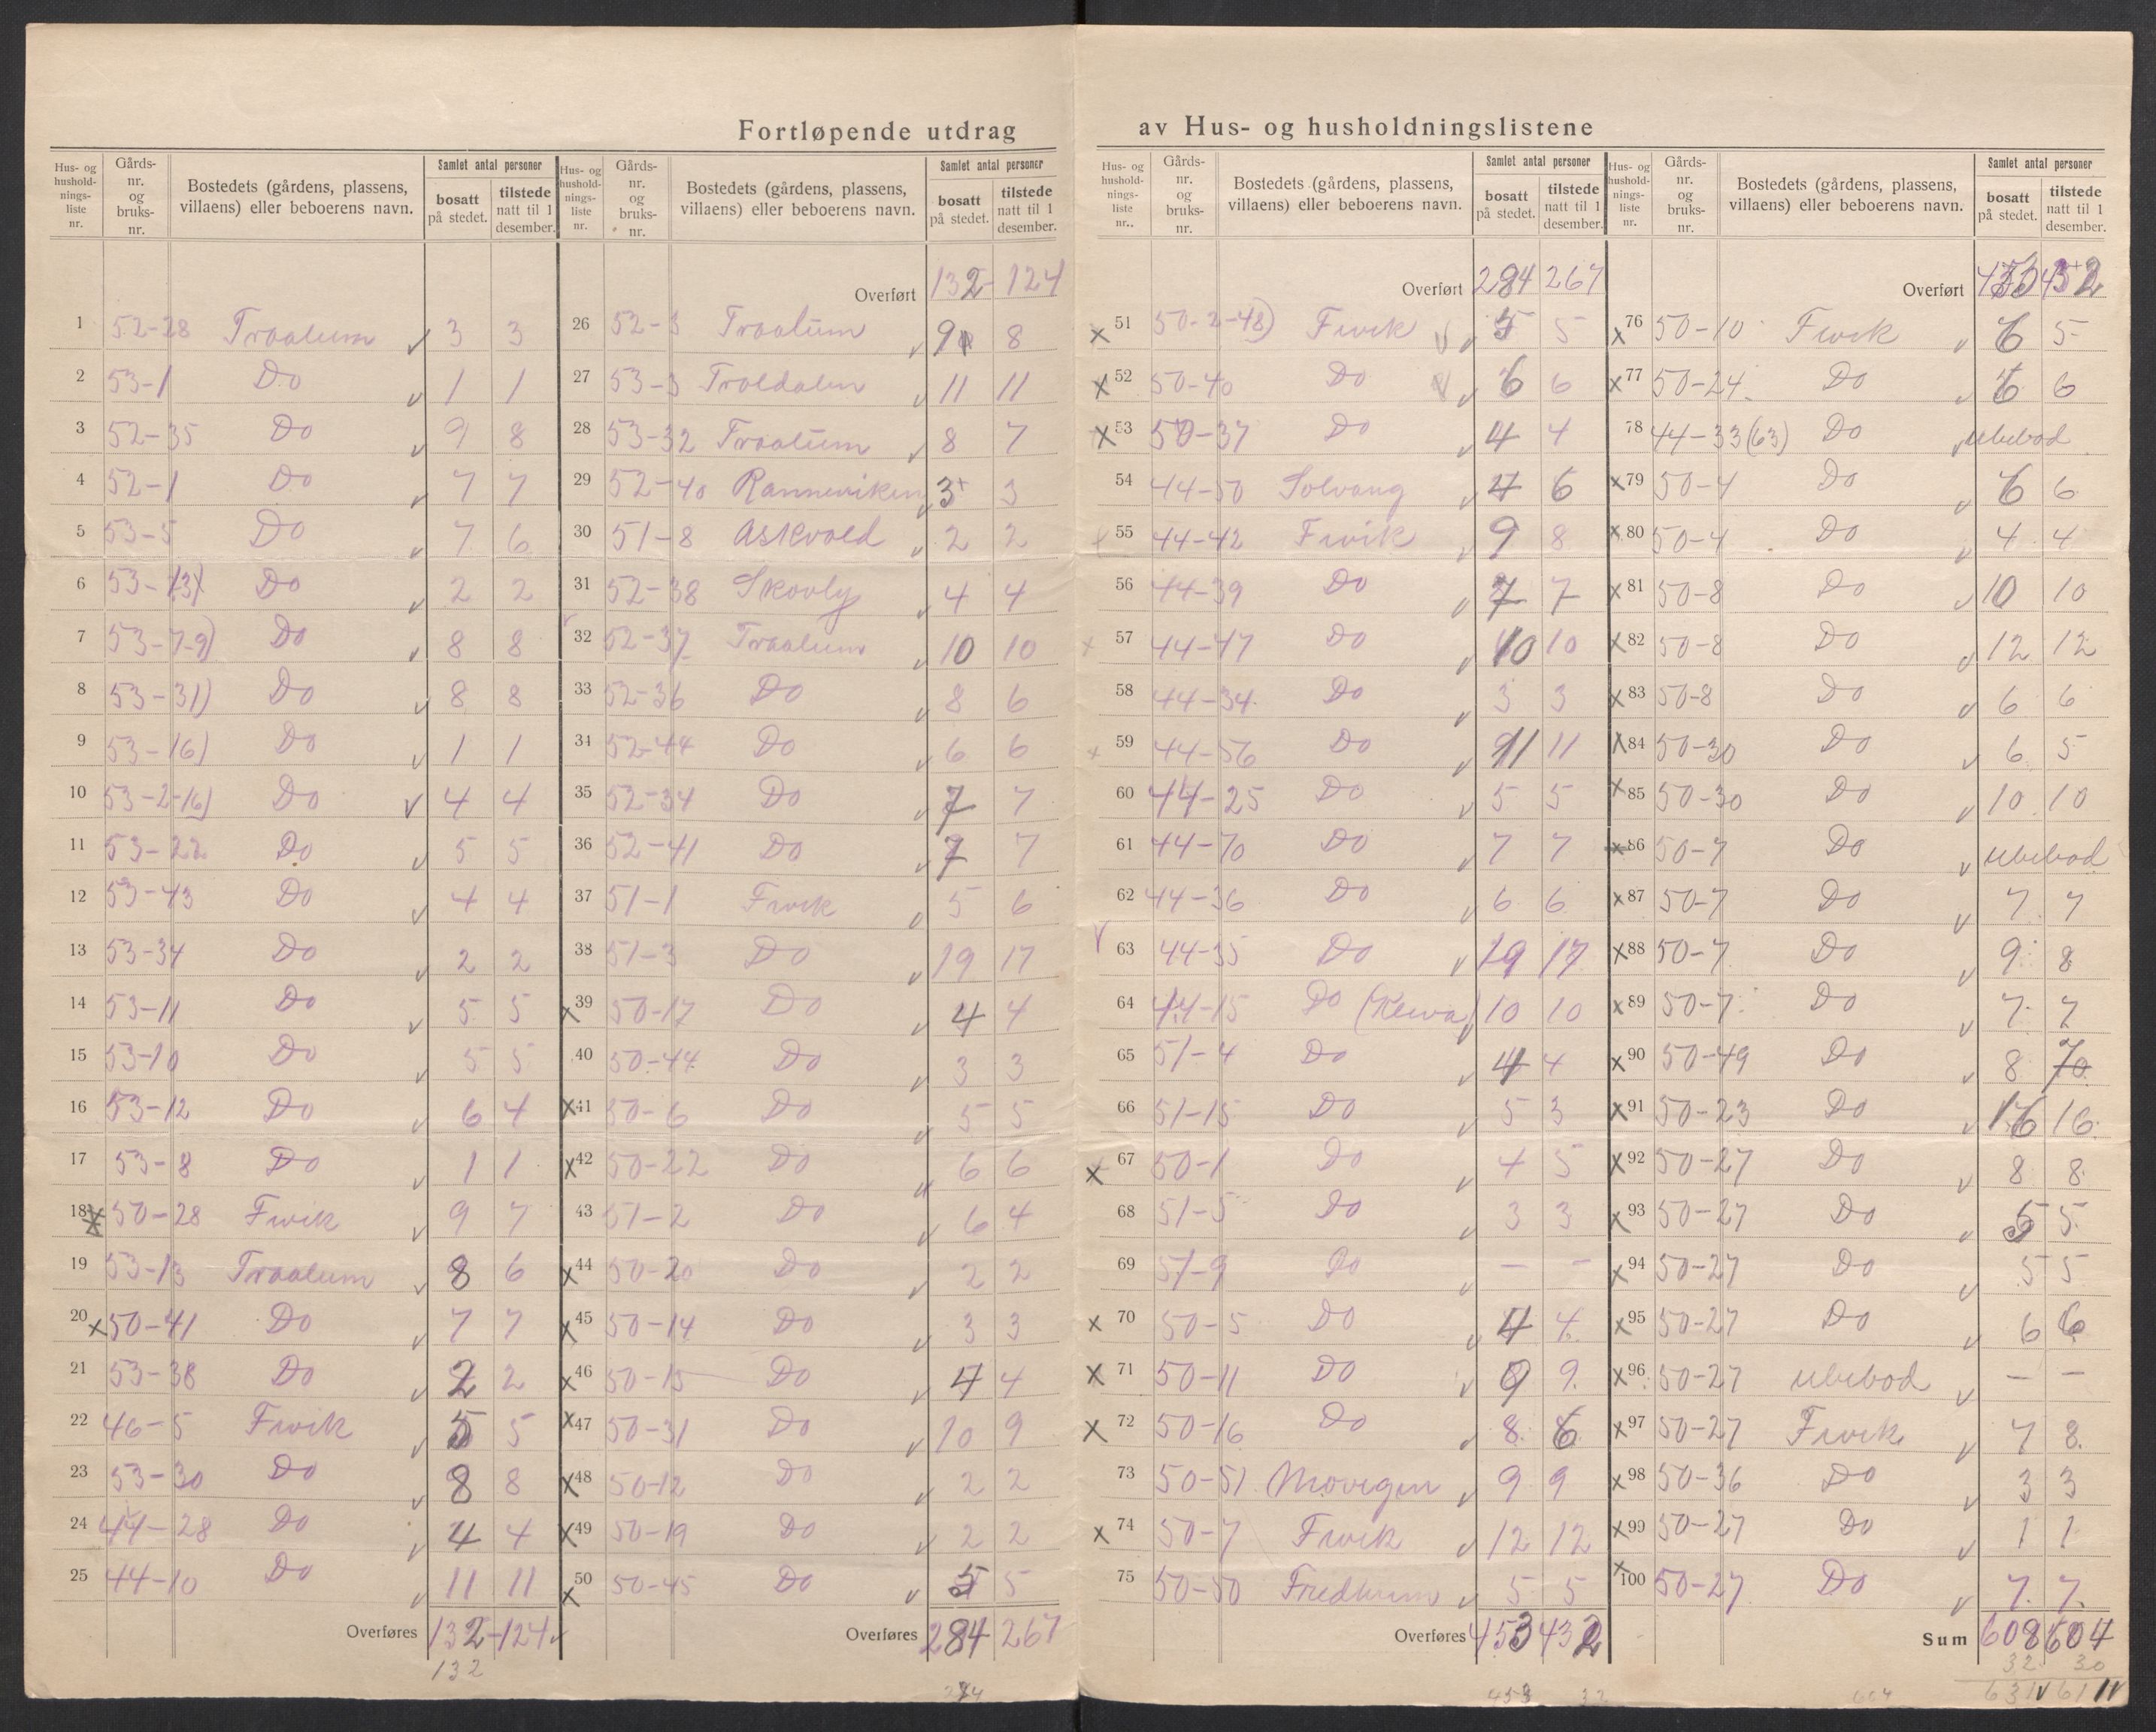 Fortløpende utdrag av Hus- og husholdningslistene
Hus- og husholdnings-liste nr. Gårds-nr. og bruks-nr. Bostedets (gårdens, plassens, villaens) eller beboerens navn. Samlet antal personer bosatt på stedet. tilstede natt til 1 desember.
1 52-28 Traalum 3 3
2 53-1 Do 1 1
3 52-35 Do 9 8
4 52-1 Do 7 7
5 53-5 Do 7 6
6 53- Do 2 2
7 53-7-9) Do 8 8
8 53-31) Do 8 8
9 53-16) Do 1 1
10 53-2-16) Do 4 4
11 53-22 Do 5 5
12 53-43 Do 4 4
13 53-34 Do 2 2
14 53-11 Do 5 5
15 53-10 Do 5 5
16 53-12 Do 6 4
17 53-8 Do 1 1
18 x 50-28 Fivik 9 7
19 53-13 Traalum 8 6
20 x 50-41 Do 7 7
21 53-38 Do 2 2
22 46-5 Fivik 5 5
23 53-30 Do 8 8
24 44-28 Do 4 4
25 44-10 Do 11 11
Overføres 132-124
132
Hus- og husholdnings-liste nr. Gårds-nr. og bruks-nr. Bostedets (gårdens, plassens, villaens) eller beboerens navn. Samlet antal personer bosatt på stedet. tilstede natt til 1 desember.
Overført 132-124
26 52-3 Traalum 9 8
27 53-3 Troldalen 11 11
28 53-32 Traalum 8 7
29 52-40 Ranneviken 3+ 3
30 51-8 Askvold 2 2
31 52-38 Skovly 4 4
32 52-37 Traalum 10 10
33 52-36 Do 8 6
34 52-44 Do 6 6
35 52-34 Do 7 7
36 52-41 Do 7 7
37 51-1 Fivik 5 6
38 51-3 Do 19 17
x 39 50-17 Do 4 4
40 50-44 Do 3 3
x 41 50-6 Do 5 5
x 42 50-22 Do 6 6
43 51-2 Do 6 4
x 44 50-20 Do 2 2
x 45 50-14 Do 3 3
x 46 50-15 Do 4 4
x 47 50-31 Do 10 9
x 48 50-12 Do 2 2
x 49 50-19 Do 2 2
x 50 50-45 Do 5 5
Overføres 284 267
Hus- og husholdnings-liste nr.. Gårds-nr. og bruks-nr. Bostedets (gårdens, plassens, villaens) eller beboerens navn. Samlet antal personer bosatt på stedet. tilstede natt til 1 desember.
Overført 284 267
x 51 50-2-48) Fivik 5 5
x 52 50-40 Do 6 6
x 53 50-37 Do 4 4
54 44-50 Solvang 7 6
55 44-42 Fivik 9 8
56 44-39 Do 7 7
57 44-47 Do 10 10
58 44-34 Do 3 3
59 44-56 Do 11 11
60 44-25 Do 5 5
61 44-70 Do 7 7
62 44-36 Do 6 6
63 44-35 Do 19 17
64 44-15 Do 10 10
65 51-4 Do 4 4
66 51-15 Do 5 3
x 67 50-1 Do 4 5
68 51-5 Do 3 3
69 51-9 Do — —
x 70 50-5 Do 4 4
x 71 50-11 Do 9 9
x 72 50-16 Do 8 6
73 50-51 9 9
x 74 50-7 Fivik 12 12
75 50-50 Fredheim 5 5
Overføres 453 432
453 32
Hus- og husholdnings-liste nr. Gårds-nr. og bruks-nr. Bostedets (gårdens, plassens, villaens) eller beboerens navn. Samlet antal personer bosatt på stedet. tilstede natt til 1 desember.
Overført 453 432
x 76 50-10 Fivik 6 5
x 77 50-24 Do 6 6
78 44-33(63) Do ubebod
x 79 50-4 Do 6 6
x 80 50-4 Do 4 4
x 81 50-8 Do 10 10
x 82 50-8 Do 12 12
x 83 50-8 Do 6 6
x 84 50-30 Do 6 5
x 85 50-30 Do 10 10
x 86 50-7 Do ubebod
x 87 50-7 Do 7 7
x 88 50-7 Do 9 8
x 89 50-7 Do 7 7
x 90 50-49 Do 8
x 91 50-23 Do 16 16
x 92 50-27 Do 8 8
x 93 50-27 Do 5 5
x 94 50-27 Do 5 5
x 95 50-27 Do 6 6
x 96 50-27 ubebod — —
x 97 50-27 Fivik 7 8
x 98 50-36 Do 3 3
x 99 50-27 Do 1 1
x 100 50-27 Do 7 7
Sum 608 604
32 30
604 631 611